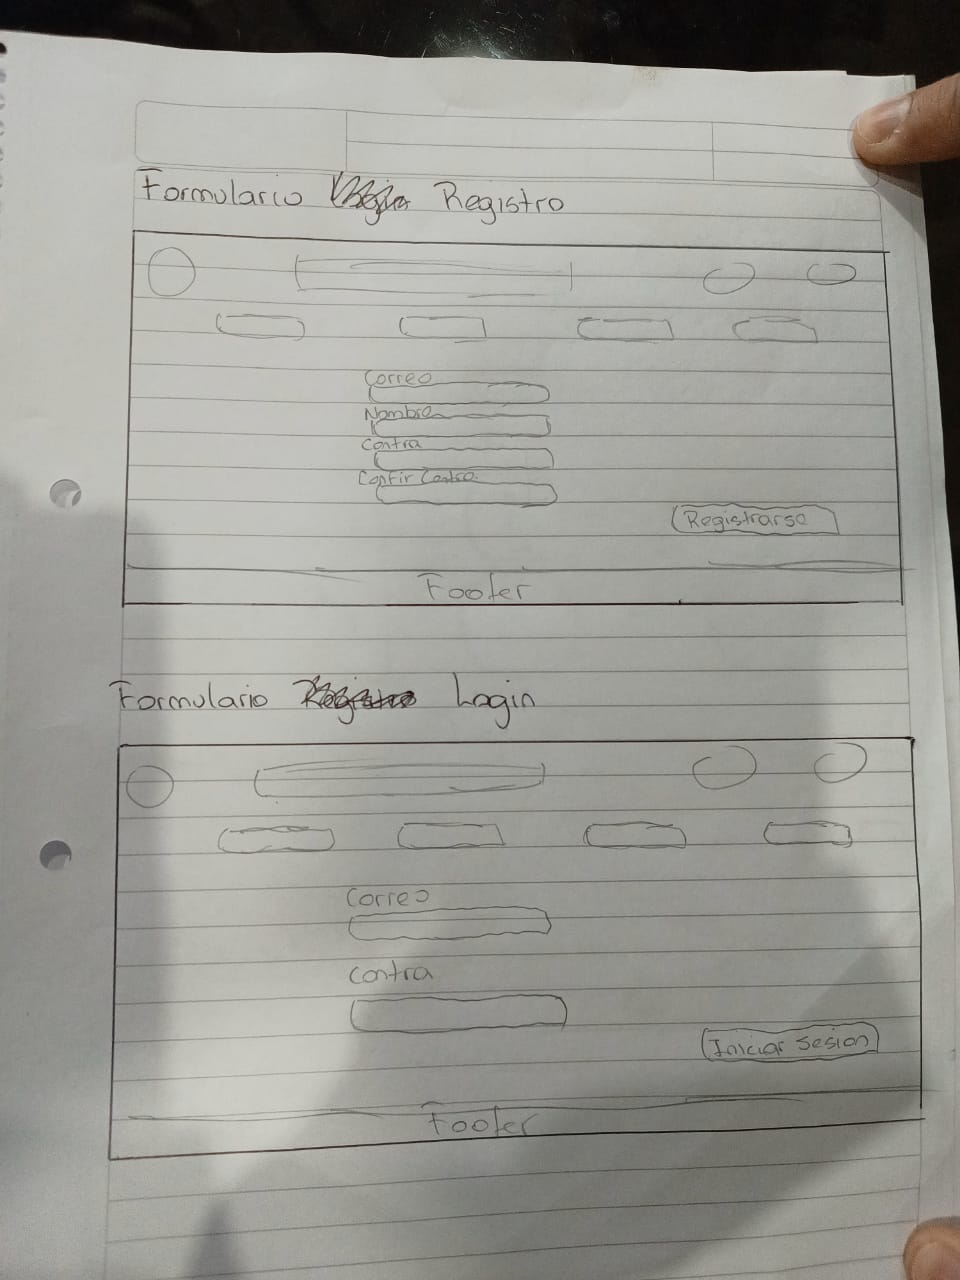 Formulario Registro
Correo
Nombre
Contra
Confir Contra
Registrarse
Footer
Formulario Registro Login
Correo
Contra
Iniciar Sesion
Footer